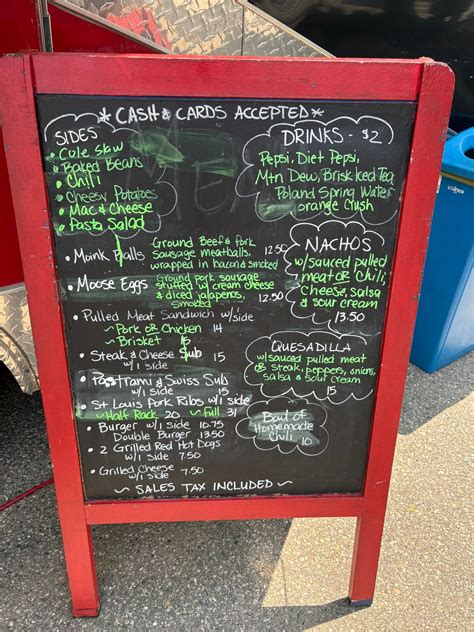 * CASH & CARDS ACCEPTED *
SIDES
• Cole Slaw
• Baked Beans
• Chili
• Cheesy Potatoes
• Mac & Cheese
• Pasta Salad
DRINKS - $2
Pepsi, Diet Pepsi,
Mtn Dew, Brisk Iced Tea
Poland Spring Water
orange Crush
• Moink Balls
Ground Beef & Pork
Sausage meatballs,
wrapped in bacon & smoked
12.50
• Moose Eggs
Ground pork sausage
stuffed w/ cream cheese
& diced jalapenos,
smoked
12.50
NACHOS
w/ sauced pulled
meat or Chili,
Cheese, Salsa
& Sour cream
13.50
• Pulled Meat Sandwich w/side
~ Pork or Chicken 14
~ Brisket 15
• Steak & Cheese Sub 15
w/ 1 side
• Pastrami & Swiss Sub
w/ 1 side 15
• St Louis Pork Ribs w/ 1 side
~ Half Rack 20 ~ Full 31
• Burger w/ 1 side 10.75
Double Burger 13.50
• 2 Grilled Red Hot Dogs
w/ 1 side 7.50
• Grilled Cheese 7.50
w/ 1 side
QUESADILLA
w/ sauced pulled meat
or Steak, peppers, onions,
Salsa & Sour cream
15
Bowl of
Homemade
Chili 10
~ SALES TAX INCLUDED ~